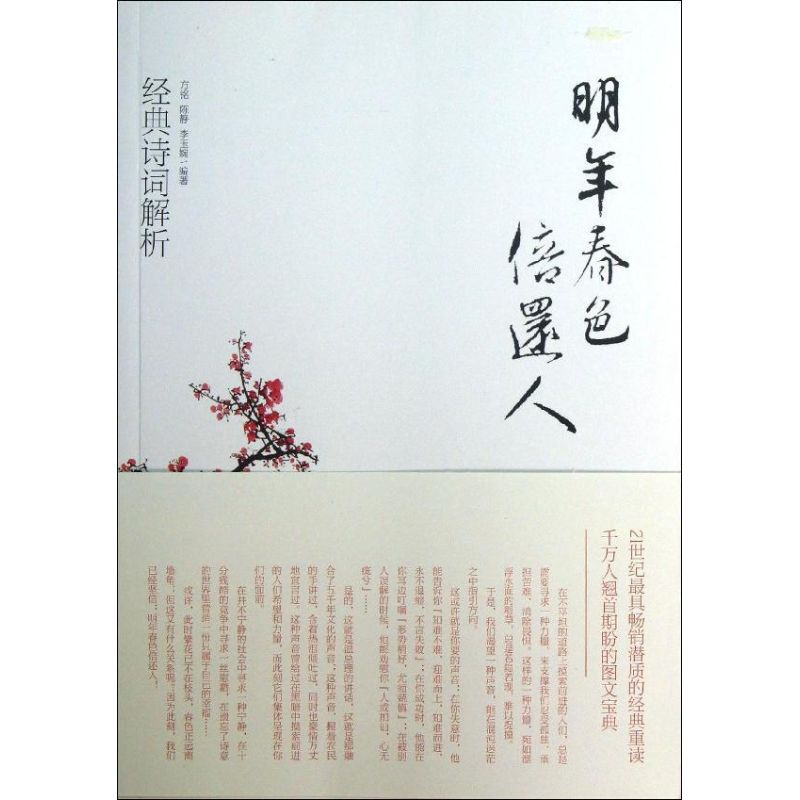 明年春色
倍還人
方铭 陈静 李玉婉·编著
经典诗词解析
21世纪最具畅销潜质的经典重读
千万人翘首期盼的图文宝典
在不平坦的道路上摸索前进的人们，总是
需要寻求一种力量，来支撑我们忍受孤独、承
担苦难、消除畏惧。这样的一种力量，宛如漂
浮水面的稻草，总是若隐若现，难以捉摸。
于是，我们渴望一种声音，能在混沌迷茫
之中指引方向。
这或许就是你要的声音：在你失意时，他
能告诉你「知难不难，迎难而上，知难而进，
永不退缩，不言失败」；在你成功时，他能在
你耳边叮嘱「形势稍好，尤须兢慎」；在被别
人误解的时候，他能劝慰你「人或加讪，心无
疵兮」……
是的，这就是温总理的讲话，这就是糅融
合了五千年文化的声音；这种声音，握着农民
的手讲过，含着热泪倾吐过，同时也豪情万丈
地宣言过。这种声音曾给过在黑暗中摸索前进
的人们希望和力量，而此刻它们集体呈现在你
们的面前。
在并不宁静的社会中寻求一种宁静，在十
分残酷的竞争中寻求一丝慰藉，在遗忘了诗意
的世界里营造一份只属于自己的幸福……
或许，此时繁花已不在枝头，春色正远离
墙角，但这又有什么关系呢？因为此刻，我们
已经坚信：明年春色倍还人。